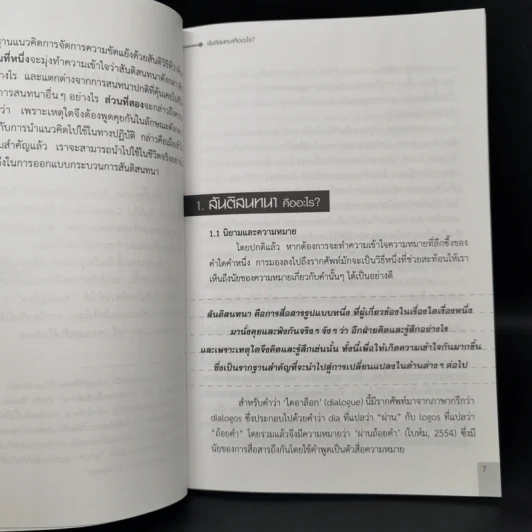 ฐานแนวคิดการจัดการความขัดแย้งด้วยสันติวิธี
นที่หนึ่งจะมุ่งทำความเข้าใจว่าสันติสนทนาดังกล่าว
างไร และแตกต่างจากการสนทนาปกติที่คุ้นเคยใน
การสนทนาอื่นๆ อย่างไร ส่วนที่สองจะกล่าวถึง
ว่า เพราะเหตุใดจึงต้องพูดคุยกันในลักษณะดังกล่าว
กับการนำแนวคิดไปใช้ในทางปฏิบัติ กล่าวคือเมื่อ
มสำคัญแล้ว เราจะสามารถนำไปใช้ในชีวิตจริงอย่าง
ถึงในการออกแบบกระบวนการสันติสนทนา
สันติสนทนาคืออะไร?
1. สันติสนทนา คืออะไร?
1.1 นิยามและความหมาย
โดยปกติแล้ว หากต้องการจะทำความเข้าใจความหมายที่ลึกซึ้งของ
คำใดคำหนึ่ง การมองลงไปถึงรากศัพท์มักจะเป็นวิธีหนึ่งที่ช่วยสะท้อนให้เรา
เห็นถึงนัยของความหมายเกี่ยวกับคำนั้นๆ ได้เป็นอย่างดี
สันติสนทนา คือการสื่อสารรูปแบบหนึ่ง ที่ผู้เกี่ยวข้องในเรื่องใดเรื่องหนึ่ง
มานั่งคุยและฟังกันจริงๆ จังๆ ว่า อีกฝ่ายคิดและรู้สึกอย่างไร
และเพราะเหตุใดจึงคิดและรู้สึกเช่นนั้น ทั้งนี้เพื่อให้เกิดความเข้าใจกันมากขึ้น
ซึ่งเป็นรากฐานสำคัญที่จะนำไปสู่การเปลี่ยนแปลงในด้านต่างๆ ต่อไป
สำหรับคำว่า 'ไดอาล็อก' (dialogue) นี้มีรากศัพท์มาจากภาษากรีกว่า
dialogos ซึ่งประกอบไปด้วยคำว่า dia ที่แปลว่า "ผ่าน" กับ logos ที่แปลว่า
"ถ้อยคำ" โดยรวมแล้วจึงมีความหมายว่า 'ผ่านถ้อยคำ' (โบห์ม, 2554) ซึ่งมี
นัยของการสื่อสารถึงกันโดยใช้คำพูดเป็นตัวสื่อความหมาย
7